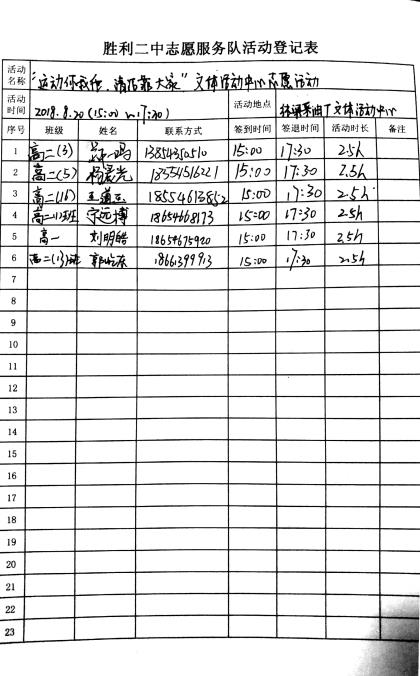 胜利二中志愿服务队活动登记表
活动名称 "运动你我他，清洁靠大家"文体活动中心志愿活动
活动时间 2018.8.20(15:00~17:30) 活动地点 采油厂文体活动中心
序号 班级 姓名 联系方式 签到时间 签退时间 活动时长 备注
1 高二(3) 13854350510 15:00 17:30 2.5h
2 高二(5) 18554516221 15:00 17:30 2.5h
3 高二(16) 18554613852 15:00 17:30 2.5h
4 高二11班 宁远博 18654668173 15:00 17:30 2.5h
5 高一 刘明皓 18654675920 15:00 17:30 2.5h
6 高二(13)班 18661399913 15:00 17:30 2.5h
7
8
9
10
11
12
13
14
15
16
17
18
19
20
21
22
23